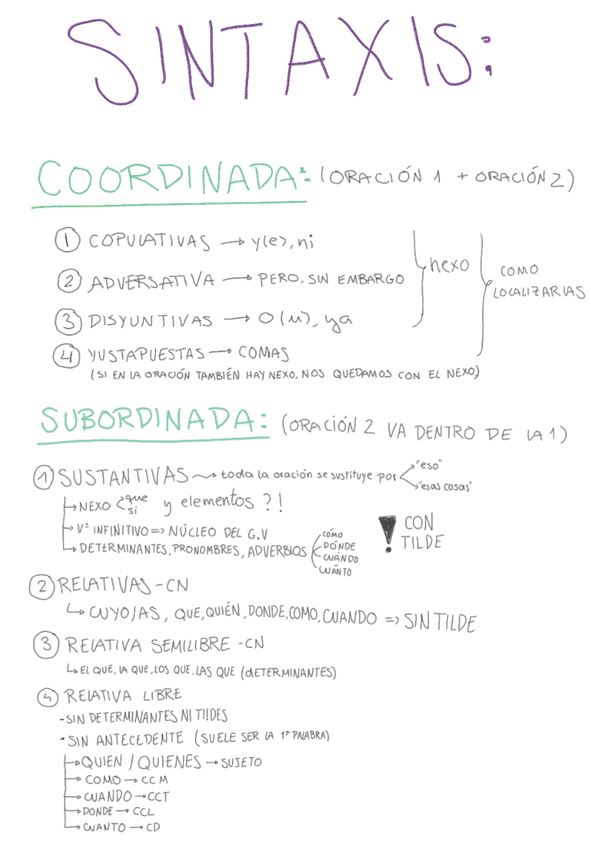 SINTAXIS:
COORDINADA: (ORACIÓN 1 + ORACIÓN 2)
① COPULATIVAS → y(e), ni
② ADVERSATIVA → PERO, SIN EMBARGO
③ DISYUNTIVAS → O(u), ya
④ YUSTAPUESTAS → COMAS
nexo
COMO LOCALIZARIAS
(SI EN LA ORACIÓN TAMBIÉN HAY NEXO, NOS QUEDAMOS CON EL NEXO)
SUBORDINADA: (ORACIÓN 2 VA DENTRO DE LA 1)
① SUSTANTIVAS → toda la oración se sustituye por "eso"
"esas cosas"
↳ NEXO < que
si
y elementos ?!
→ Vº INFINITIVO => NÚCLEO DEL G.V
↳ DETERMINANTES, PRONOMBRES, ADVERBIOS
CÓMO
DÓNDE
CUÁNDO
CUÁNTO
! CON
TILDE
② RELATIVAS - CN
↳ CUYO/AS, QUE, QUIÉN, DONDE, COMO, CUANDO => SIN TILDE
③ RELATIVA SEMILIBRE - CN
↳ EL QUE, LA QUE, LOS QUE, LAS QUE (DETERMINANTES)
④ RELATIVA LIBRE
- SIN DETERMINANTES NI TILDES
- SIN ANTECEDENTE (SUELE SER LA 1ª PALABRA)
→ QUIEN / QUIENES → SUJETO
→ COMO → CCM
→ CUANDO → CCT
→ DONDE → CCL
↳ CUANTO → CD